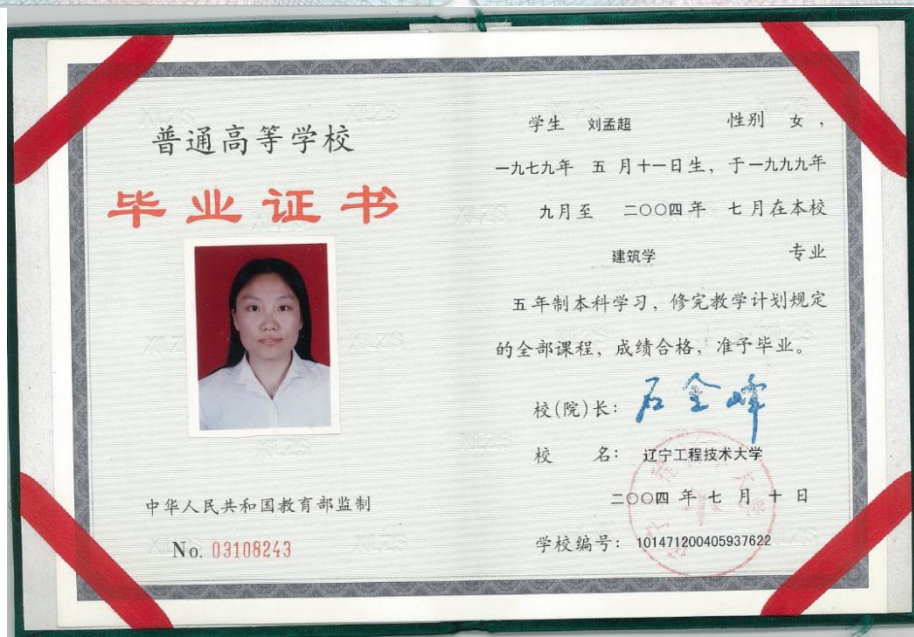 普通高等学校
毕业证书
中华人民共和国教育部监制
No. 03108243
学生 刘孟超 性别 女，
一九七九年 五 月十一日生，于一九九九年
九月至 二〇〇四年 七月在本校
建筑学 专业
五年制本科学习，修完教学计划规定
的全部课程，成绩合格，准予毕业。
校(院)长：石金峰
校 名：辽宁工程技术大学
二〇〇四 年 七 月 十 日
学校编号：101471200405937622